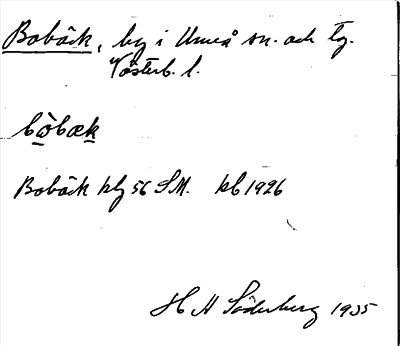 Bobäck, by i Umeå sn. och tg.
Västerb. l.
bò̱bæḵ
Bobäck hfg 56 S.M. kb 1926
H N Söderberg 1935